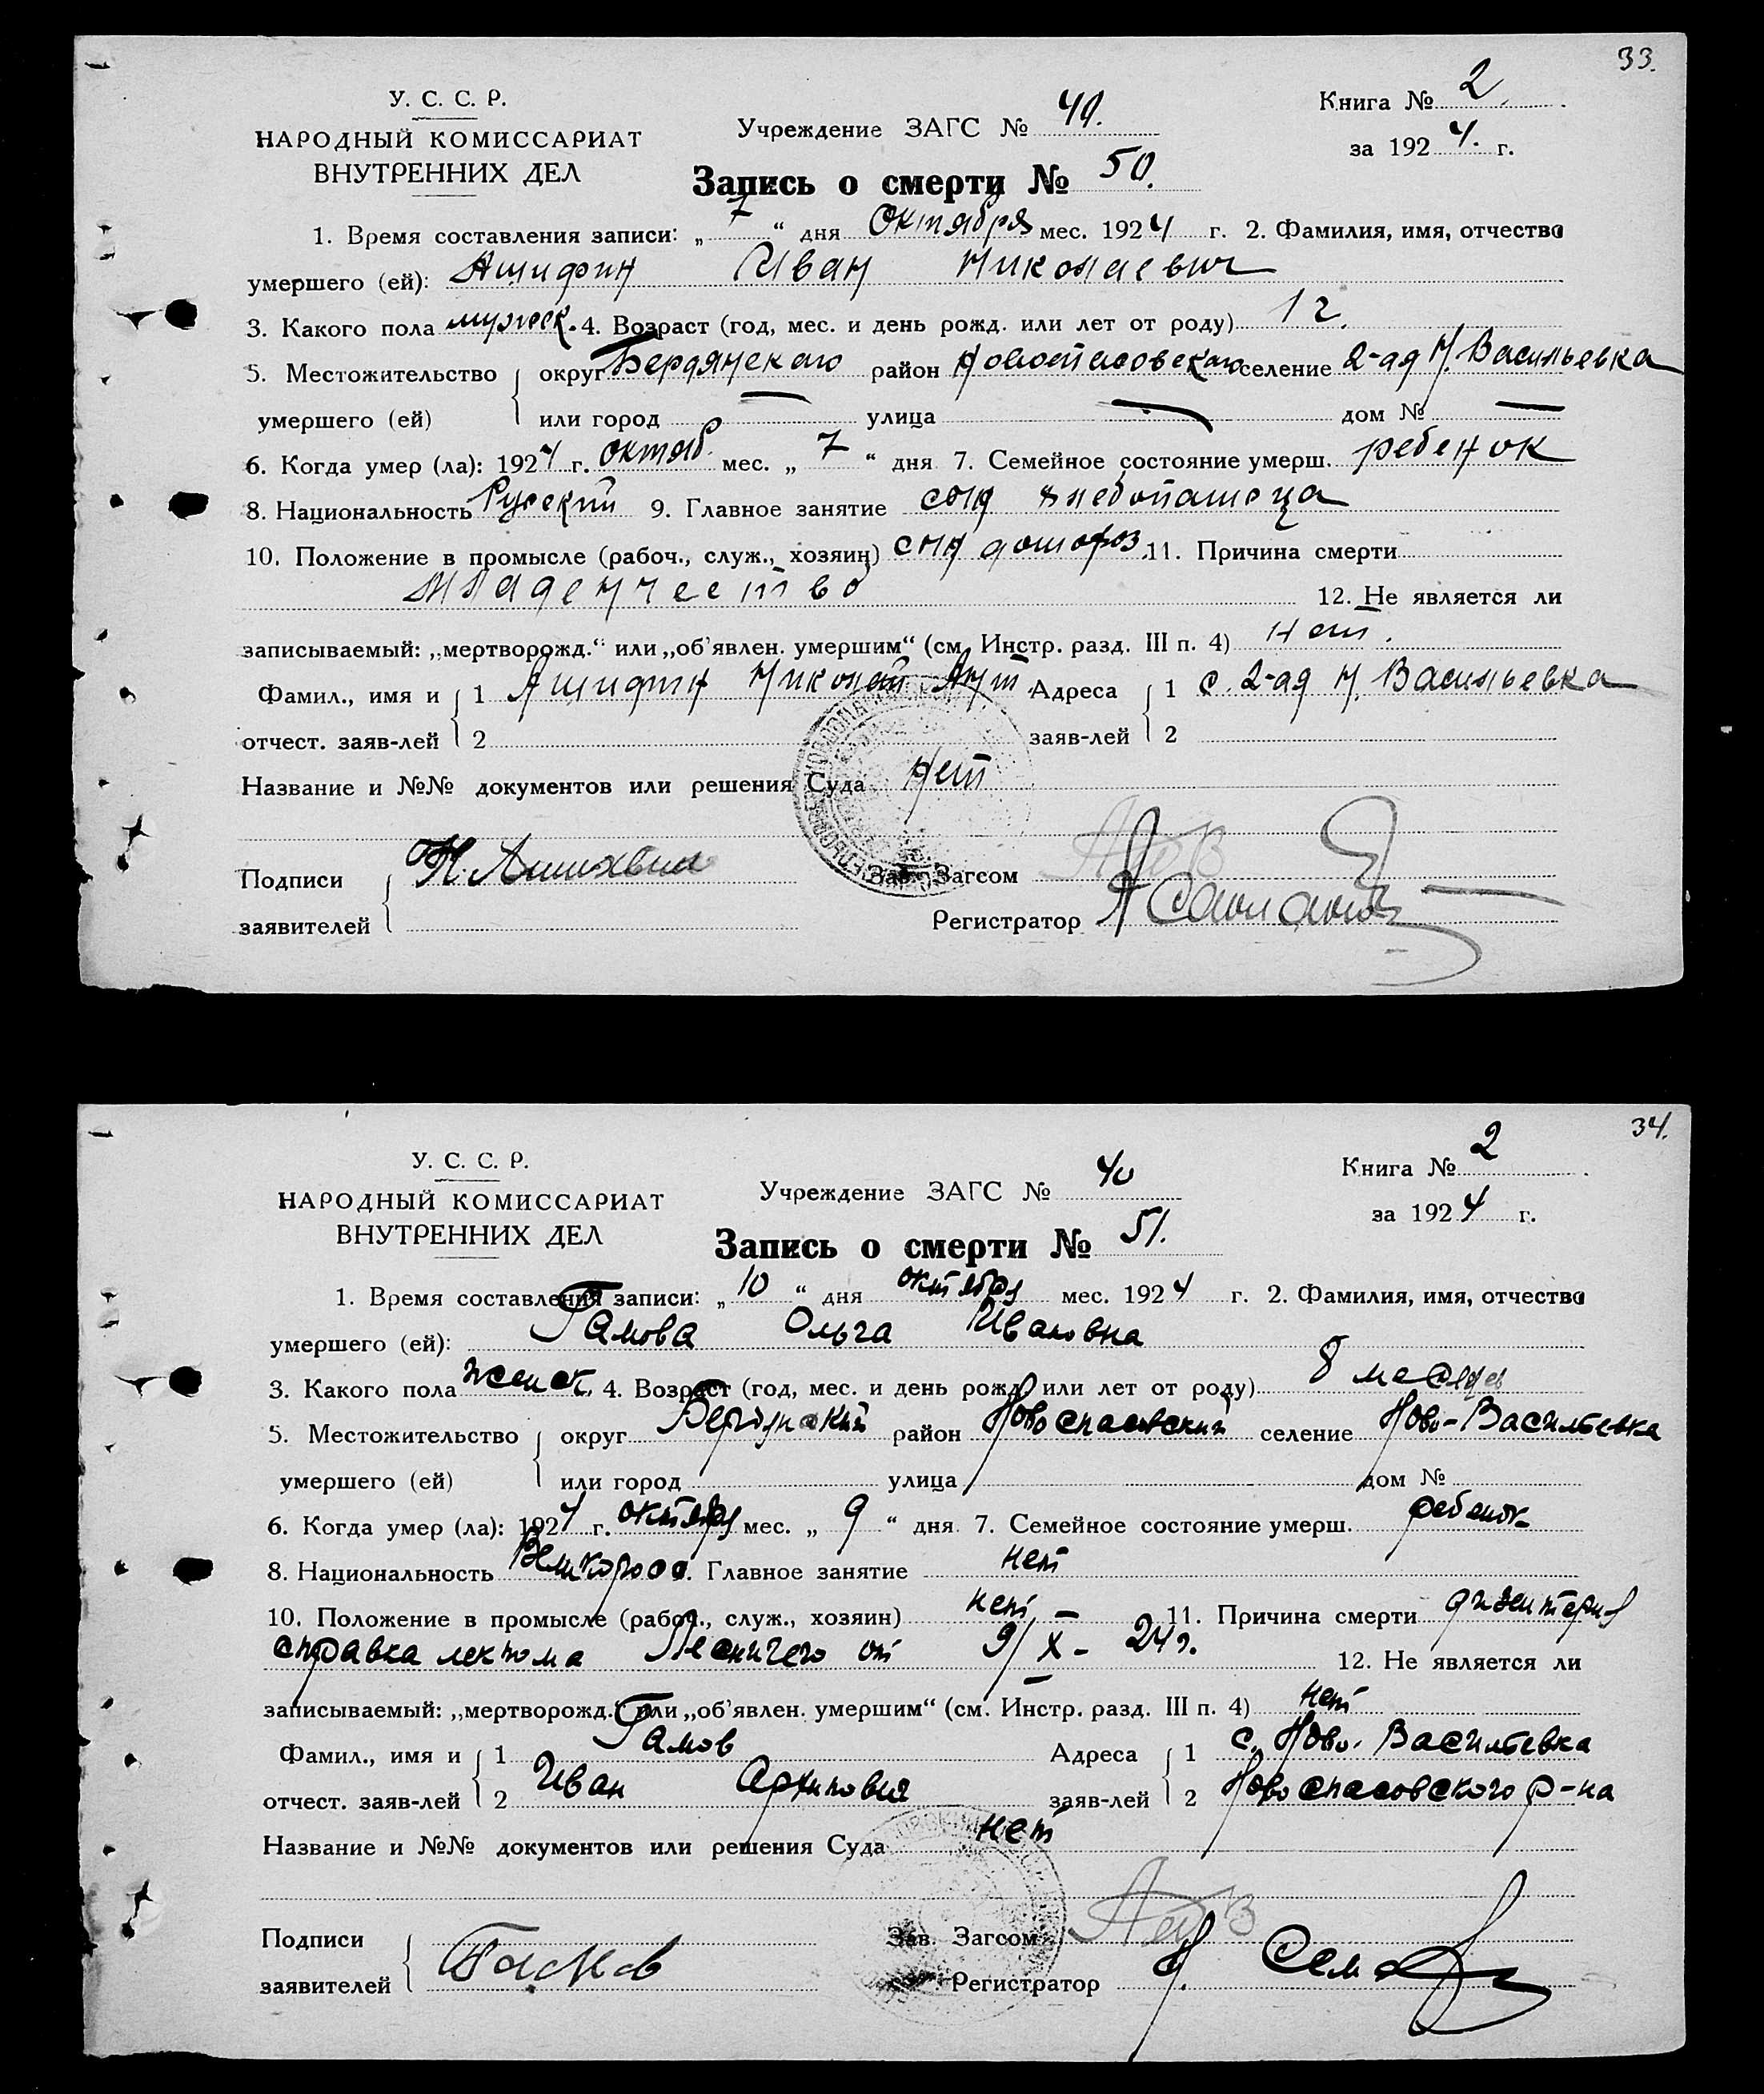 33.
У. С. С. Р.
НАРОДНЫЙ КОМИССАРИАТ
ВНУТРЕННИХ ДЕЛ
Учреждение ЗАГС № 40.
Книга № 2.
за 1924. г.
Запись о смерти № 50.
1. Время составления записи: „7“ дня Октября мес. 1924 г. 2. Фамилия, имя, отчество
умершего (ей): Ашифин Иван Николаевич
3. Какого пола мужск. 4. Возраст (год, мес. и день рожд. или лет от роду) 1 г.
5. Местожительство округ Бердянского район Новоспасовского селение 2-ая Н. Васильевка
умершего (ей) или город — улица — дом № —
6. Когда умер (ла): 1924 г. октяб. мес. „7“ дня 7. Семейное состояние умерш. ребенок
8. Национальность Русский 9. Главное занятие сын хлебопашца
10. Положение в промысле (рабоч., служ., хозяин) сын 11. Причина смерти
младенчество 12. Не является ли
записываемый: „мертворожд.“ или „об’явлен. умершим“ (см. Инстр. разд. III п. 4) нет.
Фамил., имя и 1 Ашифин Николай Адреса 1 с. 2-ая Н. Васильевка
отчест. заяв-лей 2 заяв-лей 2
Название и №№ документов или решения Суда нет
Подписи Н. Зав. Загсом
заявителей Регистратор
34.
У. С. С. Р.
НАРОДНЫЙ КОМИССАРИАТ
ВНУТРЕННИХ ДЕЛ
Учреждение ЗАГС № 40
Книга № 2
за 1924 г.
Запись о смерти № 51.
1. Время составления записи: „10“ дня октября мес. 1924 г. 2. Фамилия, имя, отчество
умершего (ей): Гамова Ольга Ивановна
3. Какого пола женск. 4. Возраст (год, мес. и день рожд. или лет от роду) 8 месяцев
5. Местожительство округ Бердянский район Новоспасовский селение Ново-Васильевка
умершего (ей) или город улица дом №
6. Когда умер (ла): 1924 г. октября мес. „9“ дня 7. Семейное состояние умерш. ребенок
8. Национальность Великоросс. Главное занятие нет
10. Положение в промысле (рабоч., служ., хозяин) нет — 11. Причина смерти дизентерия
справка лекпома Лесничего от 9/X - 24 г. 12. Не является ли
записываемый: „мертворожд.“ или „об’явлен. умершим“ (см. Инстр. разд. III п. 4) нет
Фамил., имя и 1 Гамов Адреса 1 с. Ново-Васильевка
отчест. заяв-лей 2 Иван Архипович заяв-лей 2 Новоспасовского р-на
Название и №№ документов или решения Суда нет
Подписи Гамов Зав. Загсом
заявителей Регистратор